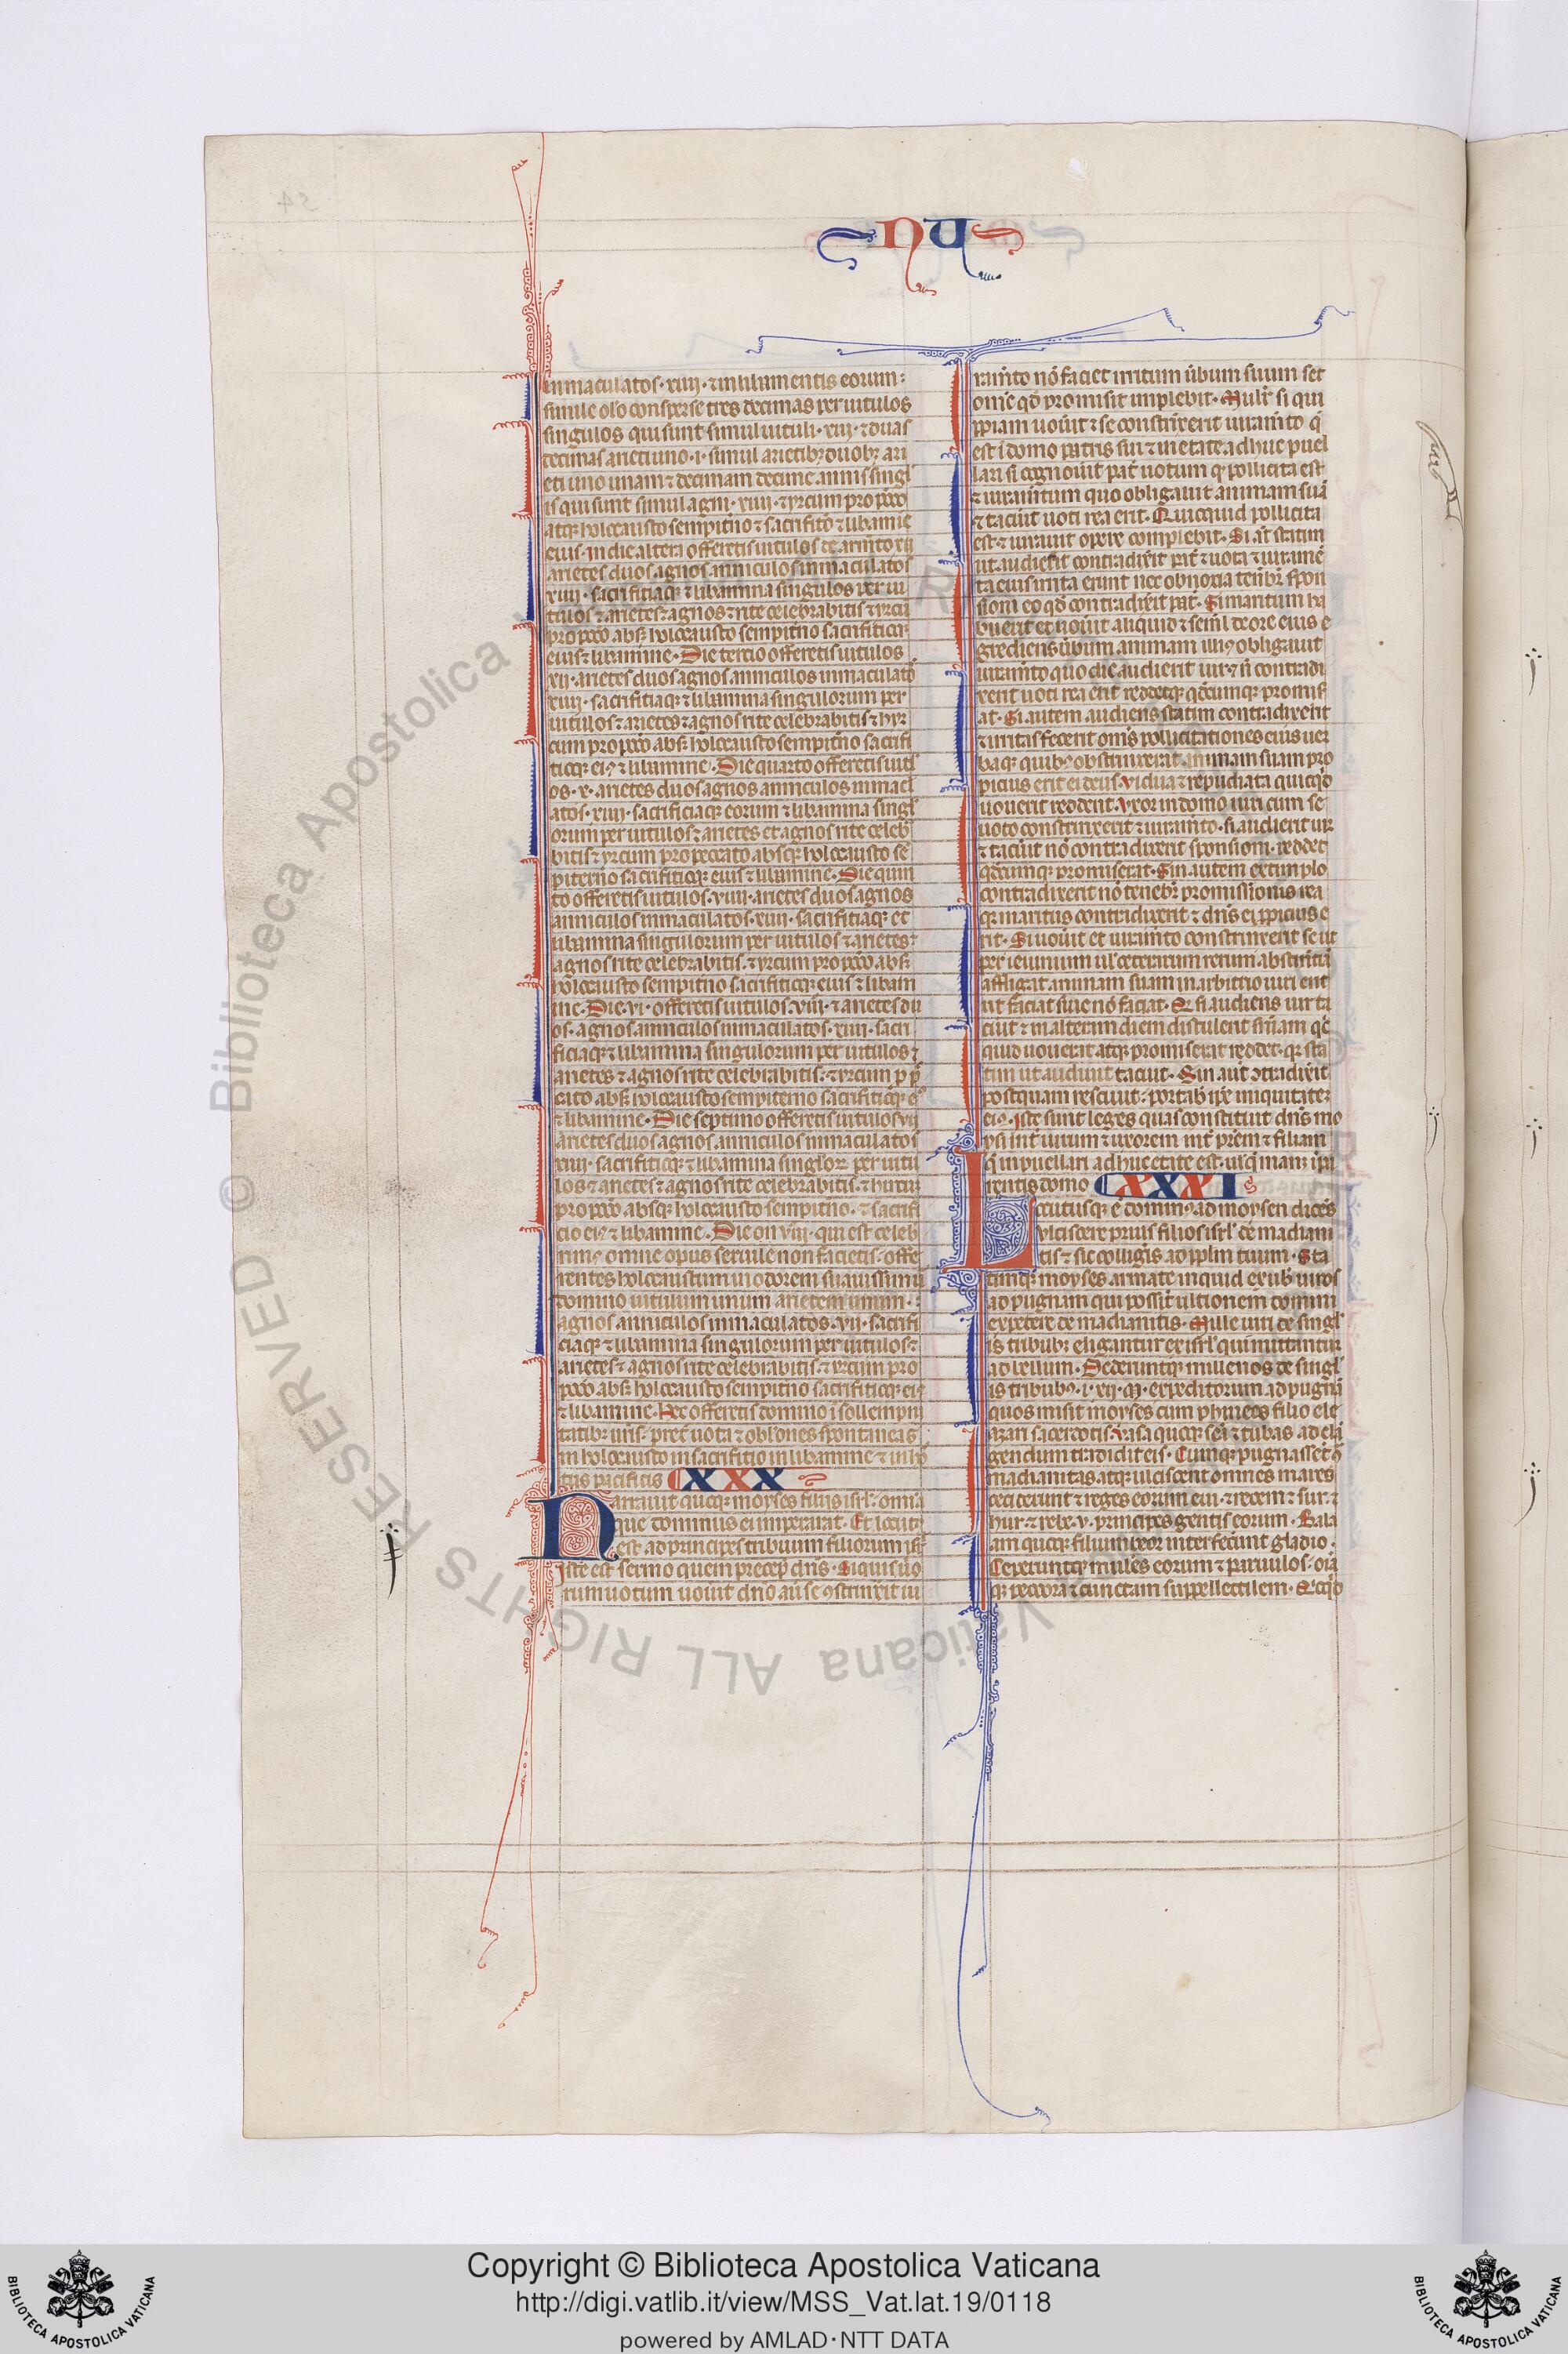 NU
inmaculatos · xiiii · ⁊ in libamentis eorum :
simile oleo consperse tres decimas per uitulos
singulos qui sunt simul uituli · xiii · ⁊ duas
decimas arieti uno · i · simul arietibꝫ duobꝫ ari
eti uno unam ⁊ decimam decime annis singl
is qui sunt simul agni · xiiii · ⁊ yrcum pro pccō
atqꝫ holocausto sempitno ⁊ sacrifitō ⁊ libamīe
eius · In die altero offeretis uitulos de armto xii
arietes duos agnos anniculos inmaculatos
xiiii · sacrifitiaqꝫ ⁊ libamina singulos per ui
tulos ⁊ arietes ⁊ agnos ⁊ rite celebrabitis ⁊ yrcū
pro pccō absqꝫ holocausto sempitno sacrifitioqꝫ
eius ⁊ libamine · Die tercio offeretis uitulos
xii · arietes duos agnos anniculos inmaculatos
xiiii · sacrifitiaqꝫ ⁊ libamina singulorum per
uitulos ⁊ arietes ⁊ agnos rite celebrabitis ⁊ hyr
cum pro pccō absqꝫ holocausto sempitno sacrifi
tioqꝫ eiꝰ ⁊ libamine · Die quarto offeretis uitl
os · x · arietes duos agnos anniculos inmacl
atos · xiiii · sacrificiaqꝫ eorum ⁊ libamina singl
orum per uitulos ⁊ arietes et agnos rite celeb
bitis ⁊ yrcum pro peccato absqꝫ holocausto se
piterno sacrifitioqꝫ eius ⁊ libamine · Die quin
to offeretis uitulos · viiii · arietes duos agnos
anniculos inmaculatos · xiiii · sacrifitiaqꝫ et
libamina singulorum per uitulos ⁊ arietes ⁊
agnos rite celebrabitis · ⁊ yrcum pro pccō absqꝫ
holocausto sempitno sacrifitioqꝫ eius ⁊ libam
ine · Die · vi · offeretis uitulos · viii · ⁊ arietes du
os · agnos anniculos inmaculatos · xiiii · sacri
ficiaqꝫ ⁊ libamina singulorum per uitulos ⁊
arietes ⁊ agnos rite celebrabitis · ⁊ yrcum p p
cato absqꝫ holocausto sempiterno sacrifitioqꝫ eꝰ
⁊ libamine · Die septimo offeretis uitulos vii
arietes duos agnos anniculos inmaculatos
xiiii · sacrifitioqꝫ ⁊ libamina singlorꝫ per uitu
los ⁊ arietes ⁊ agnos rite celebrabitis · ⁊ hircū
pro pccō absqꝫ holocausto sempitno · ⁊ sacrifi
cio eiꝰ ⁊ libamine · Die on viii · qui est celeb
rimꝰ omne opus seruile non facietis · offe
rentes holocaustum in odorem suauissimū
domino uitulum unum arietem unum · :
agnos anniculos inmaculatos · vii · sacrifi
ciaqꝫ ⁊ libamina singulorum per uitulos ⁊
arietes ⁊ agnos rite celebrabitis · ⁊ yrcum pro
pccō absqꝫ holocausto sempitno sacrifitioqꝫ eiꝰ
⁊ libamine · Hec offeretis domino ī sollempni
tatibꝫ uris · pret uota ⁊ oblōnes spontaneas
in holocausto in sacrifitio in libamine ⁊ in hos
tiis pacificis XXX
Narrauit quoqꝫ moyses filiis isrl · omnia
que dominus ei imperarat · Et locutꝰ
est ad principes tribuum filiorum isrl
Iste est sermo quem precep̄ dns · Si quis uiro
rum uotum uouit dnō aū se ꝯstrinxit iu
ramto nō faciet irritum ūbum suum set
om̄e qd̄ promisit implebit · Mulr̄ si qui
ppiam uouit ⁊ se constrinxerit iuramto q̄
est ī domo patris sui ⁊ in etate adhuc puel
lari si cognouit pat̄ uotum qꝫ pollicita est
⁊ iuramtum quo obligauit animam suā
⁊ tacuit uoti rea erit · Quicquid pollicita
est ⁊ iurauit opere complebit · Si aūt statim
ut audierit contradixit pat̄ ⁊ uota ⁊ iuramē
ta eius irrita erunt nec obnoxia tenebr̄ spon
sioni eo qd̄ contradixit pat̄ · Si maritum ha
buerit et uouit aliquid ⁊ seml̄ de ore eius e
grediens ūbum animam illiꝰ obligauit
iuramto quo die audierit uir ⁊ n̄ contradi
xerit uoti rea erit reddetqꝫ qd̄cumqꝫ promis
at · Si autem audiens statim contradixerit
⁊ irritas fecerit om̄s pollicitationes eius uer
baqꝫ quibꝰ obstrinxerat animam suam pro
picius erit ei deus · Vidua ⁊ repudiata quicqd̄
uouerit reddent · Vxor in domo uiri cum se
uoto constrinxerit ⁊ iuramto · si audierit uir
⁊ tacuit nō contradixerit sponsioni · reddet
qd̄cumqꝫ promiserat · Sin autem extimplo
contradixerit nō tenebr̄ promissionis rea
qꝫ maritus contradixerit ⁊ dn̄s ei ꝓpicius e
rit · Si uouit et iuramto constrinxerit se ut
per ieiunium ul ceterarum rerum abstinētiā
affligat animam suam in arbitrio uiri erit
ut faciat siue nō faciat · Et si audiens uir ta
cuit ⁊ in alterum diem distulerit sn̄iam qc
quid uouerit atqꝫ promiserit reddet · qꝫ sta
tim ut audiuit tacuit · Sin aūt ꝯtradixit
postquam resciuit · portab̄ ipē iniquitatē
eiꝰ · Iste sunt leges quas constituit dn̄s mo
ysi int̄ uirum ⁊ uxorem int̄ prem ⁊ filiam
q̄ in puellari adhuc etate est · ul q̄ manꝫ ī pa
rentis domo XXXI
Locutusqꝫ ē dominꝰ ad moysen dicēs
vlciscere prius filios isrl' de madiani
tis ⁊ sic colligis ad pplm tuum · Sta
timqꝫ moyses armate inquid ex uob uiros
ad pugnam qui possit ultionem domini
expetere de madianitis · Mille uiri de singl
is tribubꝫ eligantur ex isrl' qui mittantur
ad bellum · Dederuntqꝫ millenos de singl
is tribubꝰ · i · xii · M · expeditorum ad pugnā
quos misit moyses cum phinees filio ele
azari sacerdotis · Vasa quoqꝫ scā ⁊ tubas ad clā
gendum tradidit eis · Cumqꝫ pugnassēt ꝯ
madianitas atqꝫ uiciscent omnes mares
occiderunt ⁊ reges eorum eui · ⁊ recem ⁊ sur · ⁊
hur · ⁊ rebe · v · principes gentis eorum · Bala
am quoqꝫ filium beor interfecūnt gladio ·
Ceperuntqꝫ mulies eorum ⁊ paruulos · oīa
qꝫ peccora ⁊ cunctam suppellectilem · Et cqd̄
© Biblioteca Apostolica Vaticana ALL RIGHTS RESERVED
Copyright © Biblioteca Apostolica Vaticana
http://digi.vatlib.it/view/MSS_Vat.lat.19/0118
powered by AMLAD·NTT DATA
BIBLIOTECA APOSTOLICA VATICANA
BIBLIOTECA APOSTOLICA VATICANA